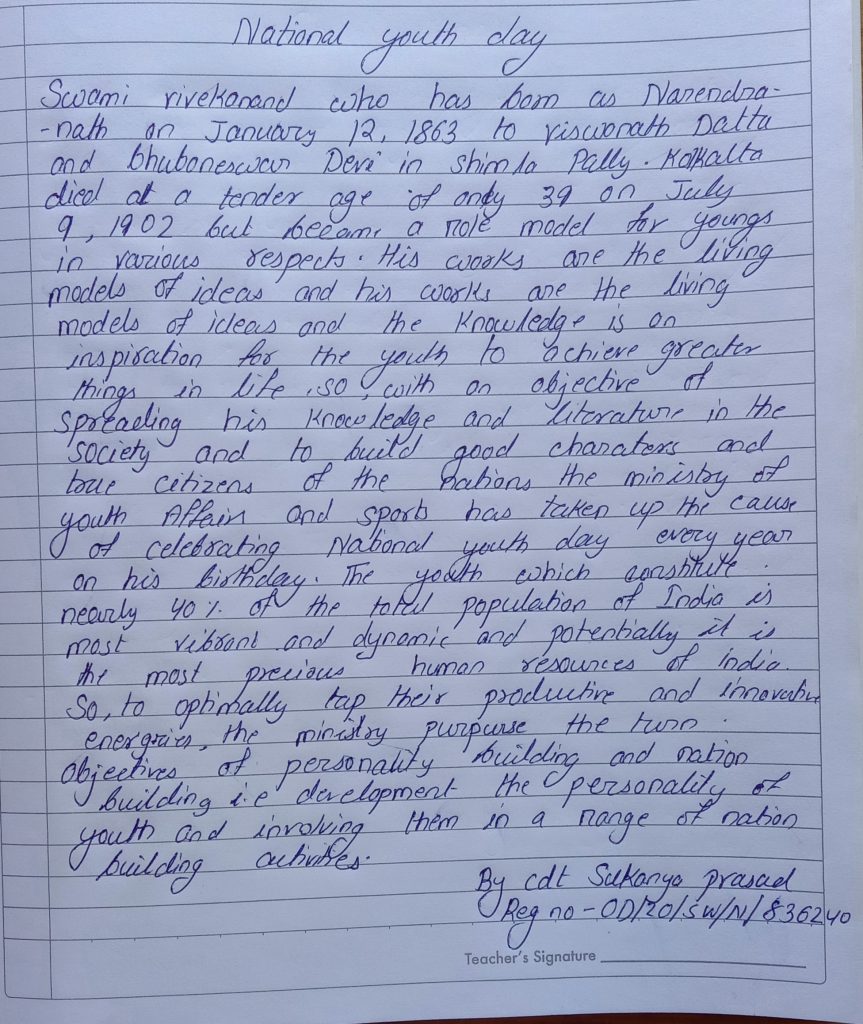 National youth day
Swami vivekanand who has born as Narendra-
-nath on January 12, 1863 to viswanath Datta
and bhubaneswar Devi in shimla Pally. Kolkalta
died at a tender age of only 39 on July
9, 1902 but became a role model for youngs
in various respects. His works are the living
models of ideas and his works are the living
models of ideas and the knowledge is an
inspiration for the youth to achieve greater
things in life, so, with an objective of
spreading his knowledge and literature in the
society and to build good charaters and
true citizens of the nations the ministry of
youth Affairs and sports has taken up the cause
of celebrating National youth day every year
on his birthday. The youth which constitute
nearly 40% of the total population of India is
most vibrant and dynamic and potentially it is
the most precious human resources of india.
So, to optimally tap their productive and innovative
energries, the ministry purpurse the turn
objectives of personality building and nation
building i.e development the personality of
youth and involving them in a range of nation
building activities.
By cdt Sukanya prasad
Reg no - OD/20/SW/N/836240
Teacher's Signature